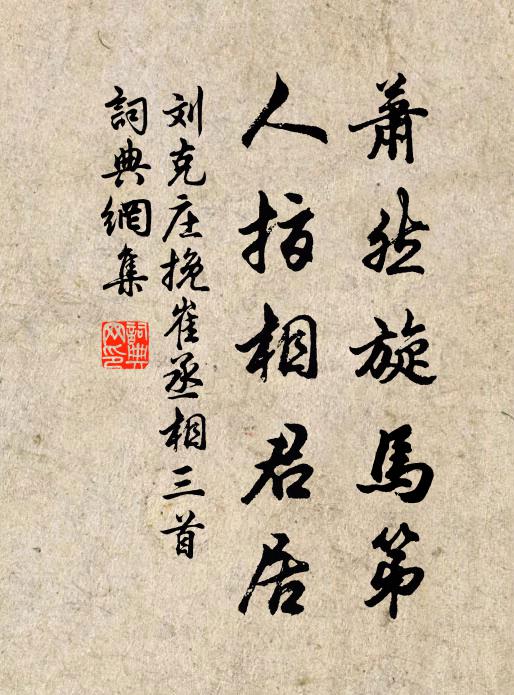 蕭然旋馬第
人指相君居
刘克庄挽崔丞相三首
詞典網集
詞典网印